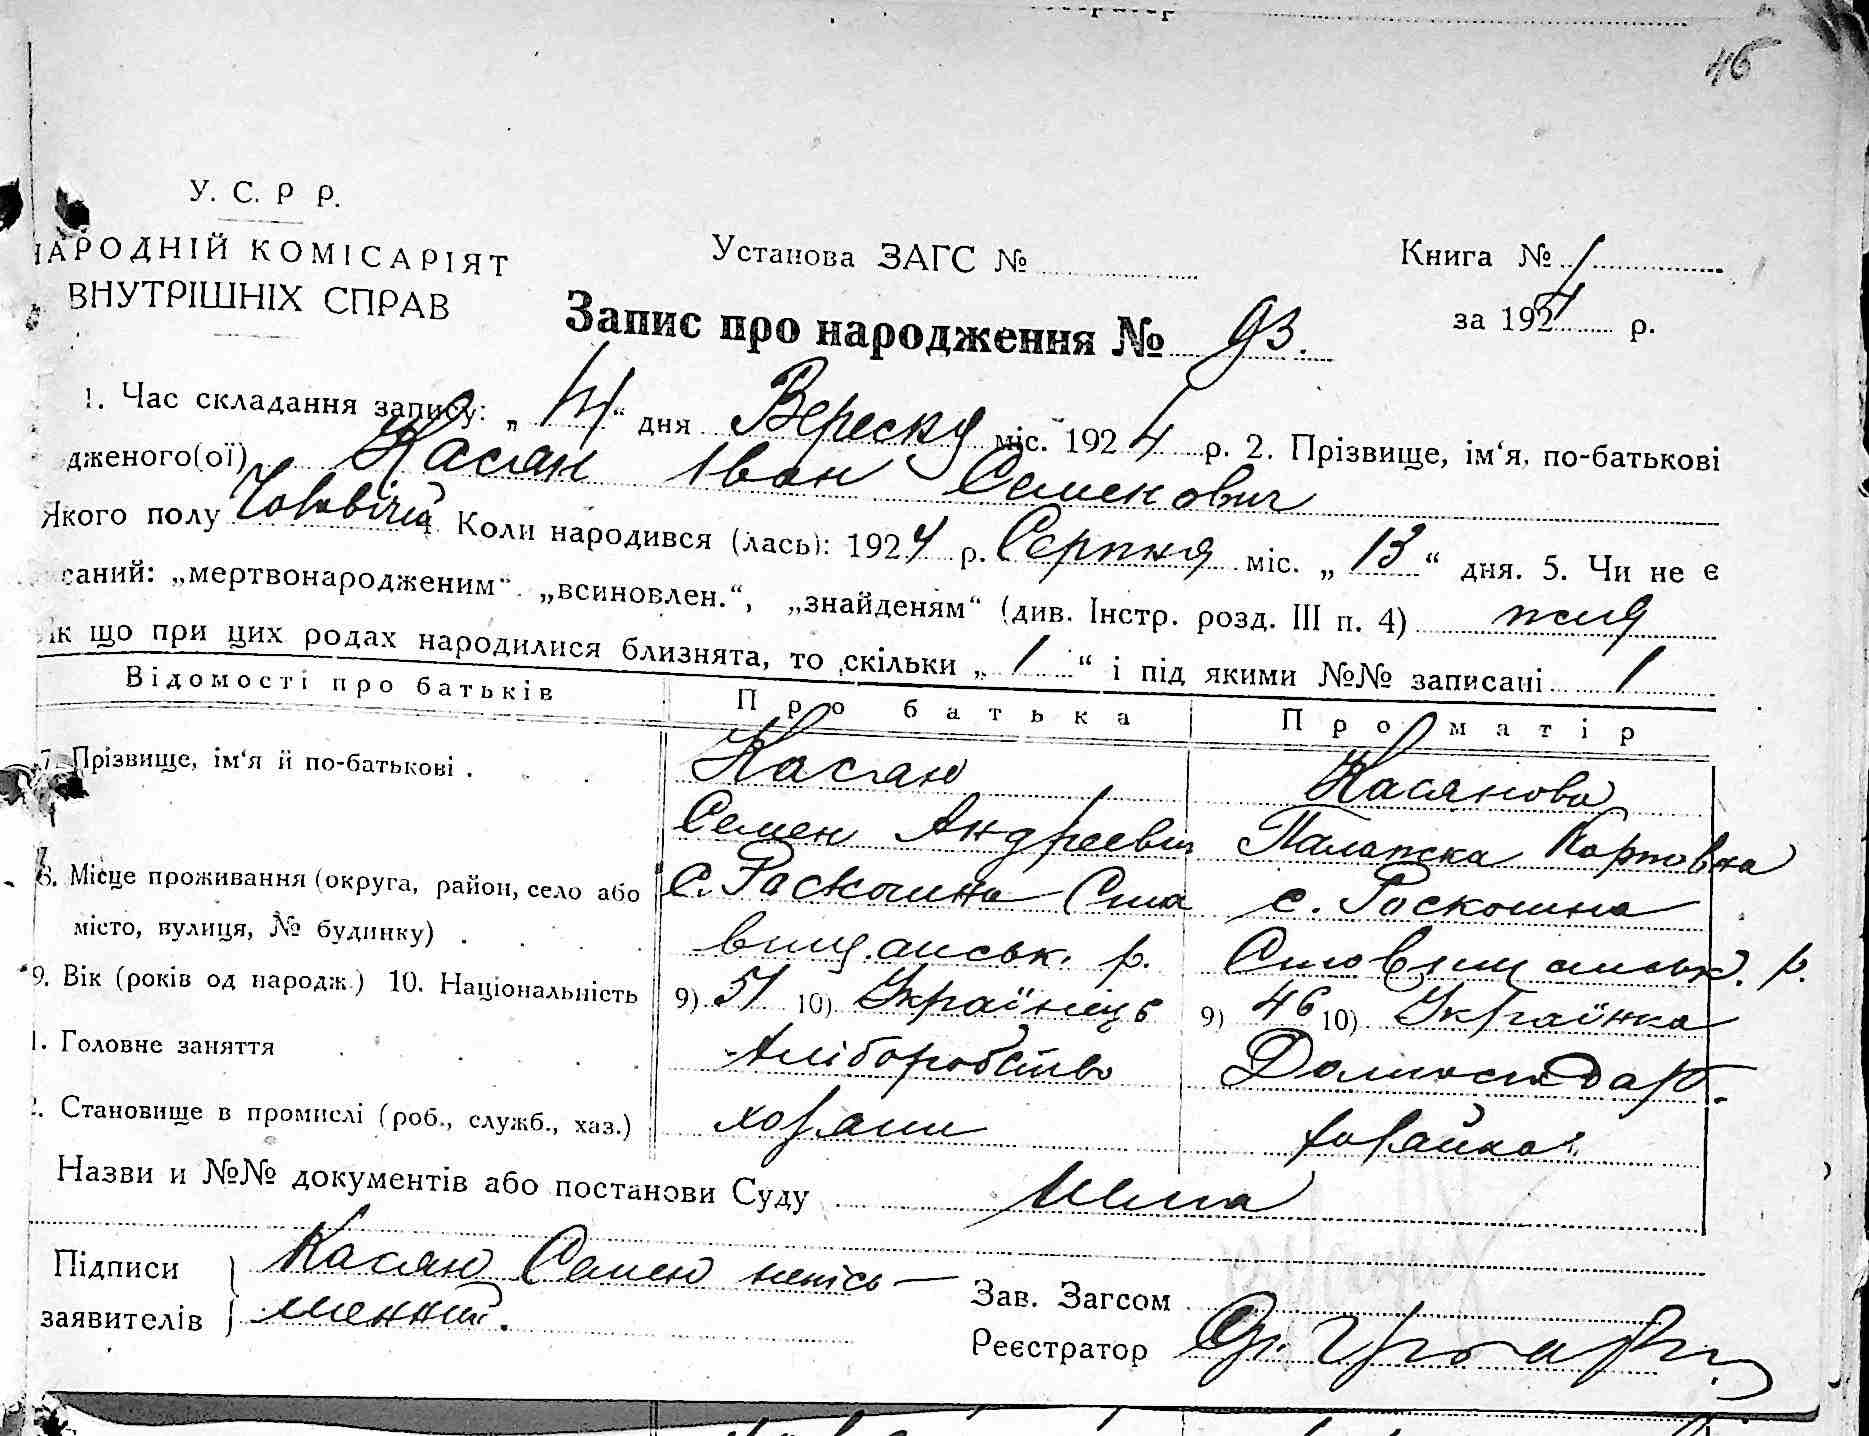 46
У. С. Р Р.
НАРОДНІЙ КОМІСАРІЯТ
ВНУТРІШНІХ СПРАВ
Установа ЗАГС №
Книга № 1
за 1924 р.
Запис про народження № 93.
1. Час складання запису: „14“ дня Вересня міс. 1924 р. 2. Прізвище, ім‘я, по-батькові
дженого(ої) Касян Іван Семенович
Якого полу Чоловічій Коли народився (лась): 1924 р. Серпня міс. „13“ дня. 5. Чи не є
саний: „мертвонародженим“. „всиновлен.“, „знайденям“ (див. Інстр. розд. III п. 4)
як що при цих родах народилися близнята, то скільки „ 1 “ і під якими №№ записані 1
Відомості про батьків Про батька Про матір
7. Прізвище, ім‘я й по-батькові . Касян Касянова
Семен Андреевич Палажка Карповна
8. Місце проживання (округа, район, село або с. Раскошна Ста с. Роскошна
місто, вулиця, № будинку) . вищанськ. р. Ставищанськ. р.
9. Вік (років од народж.) 10. Національність 9) 51 10) Українець 9) 46 10) Українка
1. Головне заняття Хліборобство Домогосподар.
2. Становище в промислі (роб., служб., хаз.) хозяин хозяйка
Назви и №№ документів або постанови Суду Нема
Підписи заявителів } Касян Семен неписьменний.
Зав. Загсом
Реєстратор